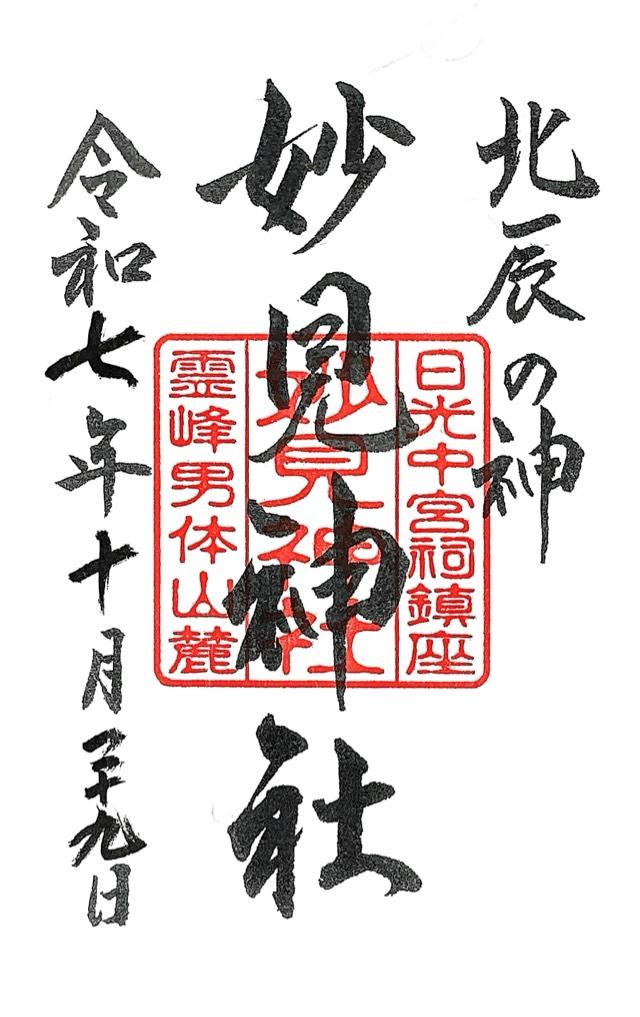 北辰の神
日光中宮祠鎮座
妙見神社
妙見神社
霊峰男体山麓
令和七年十月二十九日